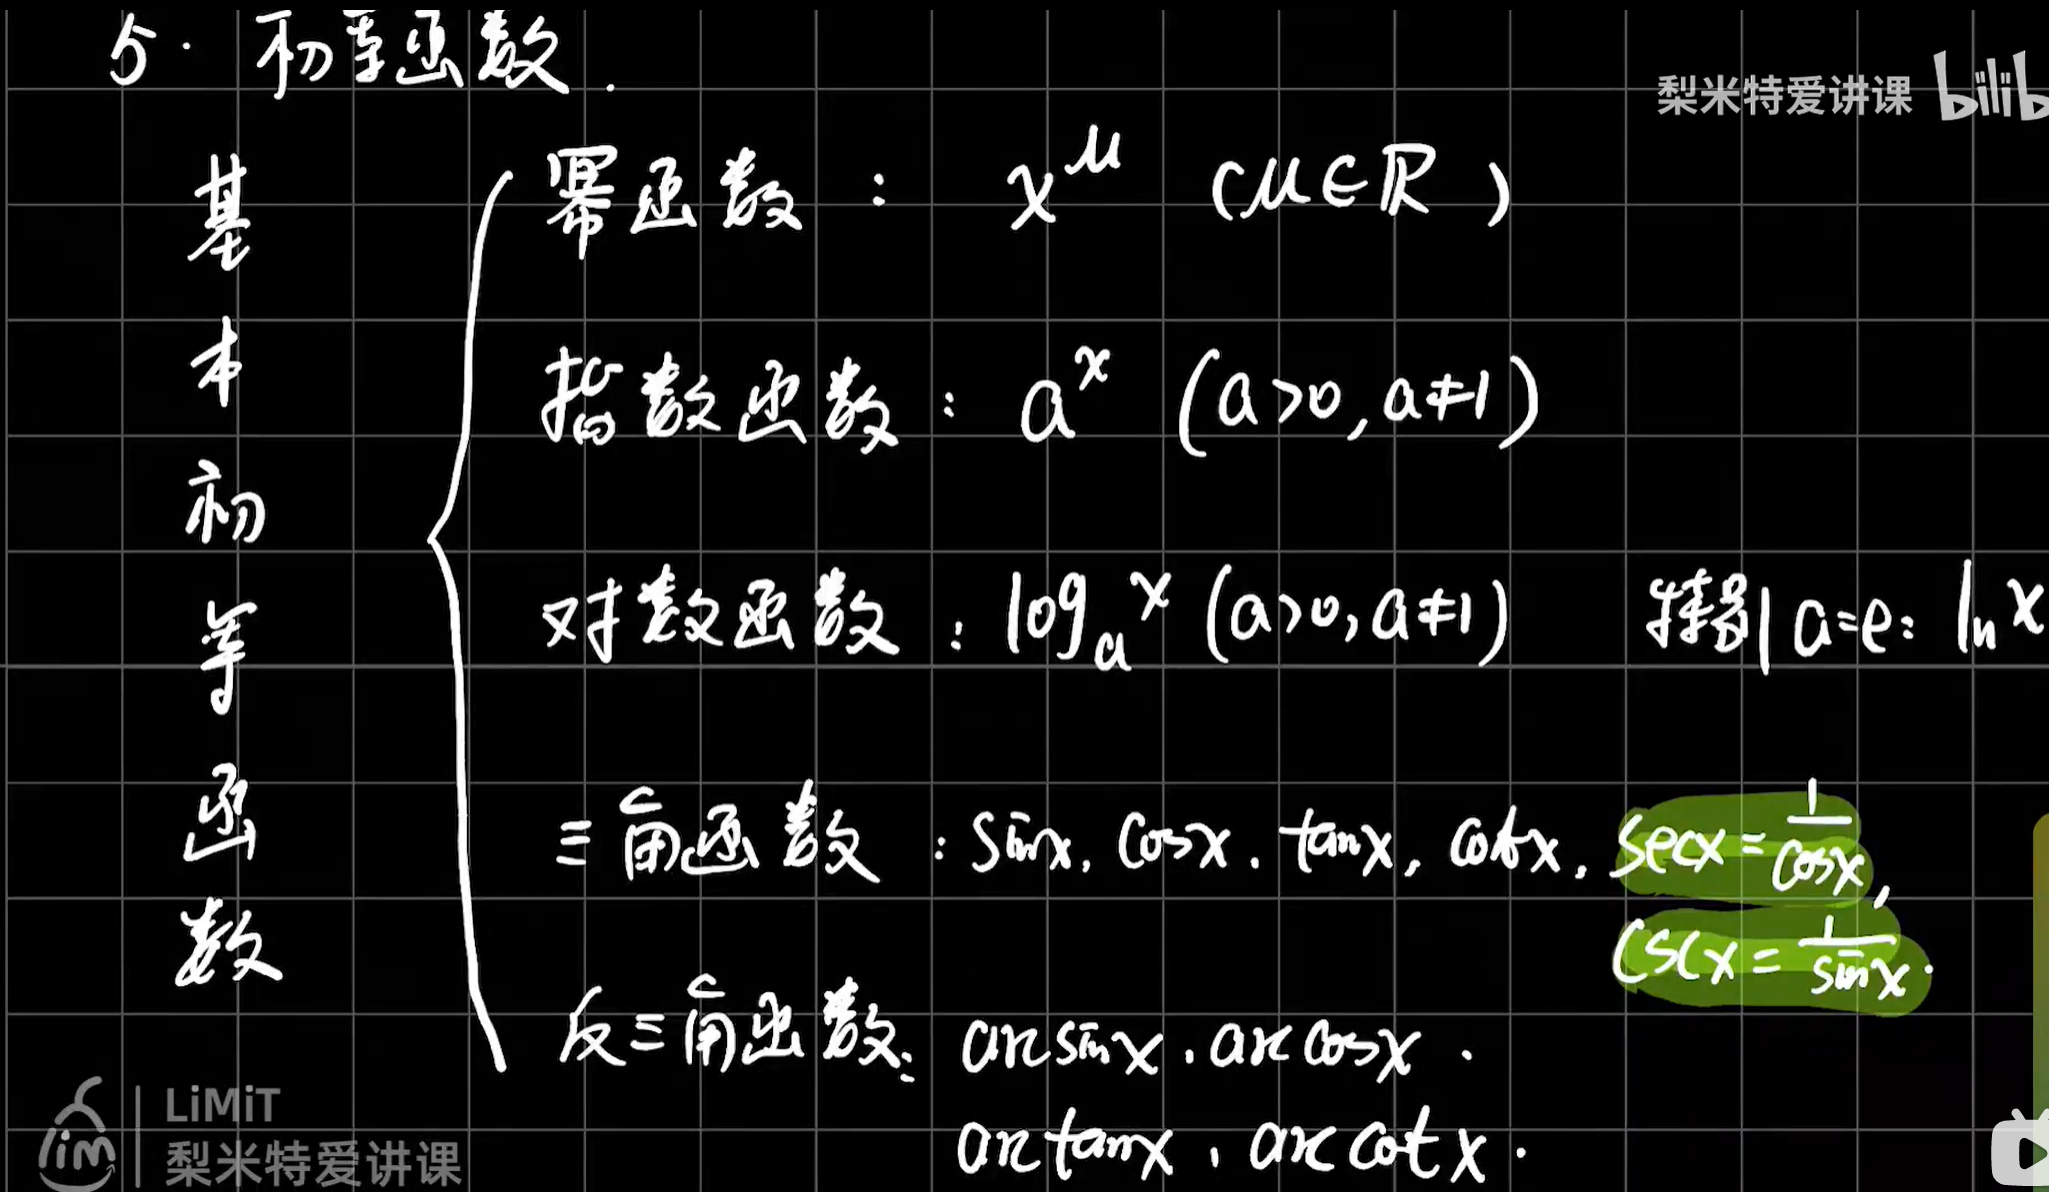 5. 初等函数.
梨米特爱讲课 bilib
基本初等函数
幂函数: x^μ (μ∈ℝ)
指数函数: a^x (a>0, a≠1)
对数函数: log_a x (a>0, a≠1) 特别 a=e: ln x
三角函数: sinx, cosx, tanx, cotx, secx = 1/cosx,
cscx = 1/sinx.
反三角函数: arcsinx, arccosx.
arctanx, arccotx.
LiMiT
lim 梨米特爱讲课